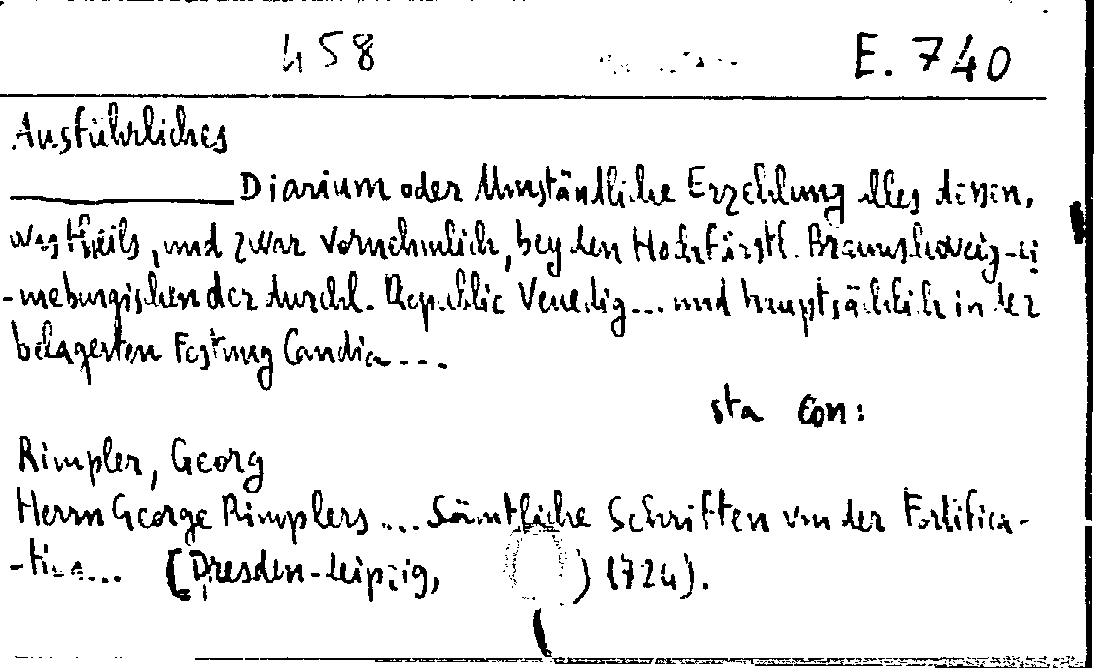 458 E. 740
Ausführliches
Diarium oder Umständliche Erzehlung alles dessen,
was theils, und zwar vornehmlich, bey den Hochfürstl. Braunschweig-Lü
-neburgischen der durchl. Republic Venedig... und hauptsächlich in der
belagerten Festung Candia....
sta con:
Rimpler, Georg
Herrn George Rimplers ... Sämtliche Schriften von der Fortifica-
-tion... [Dresden-Leipzig, ) (724).